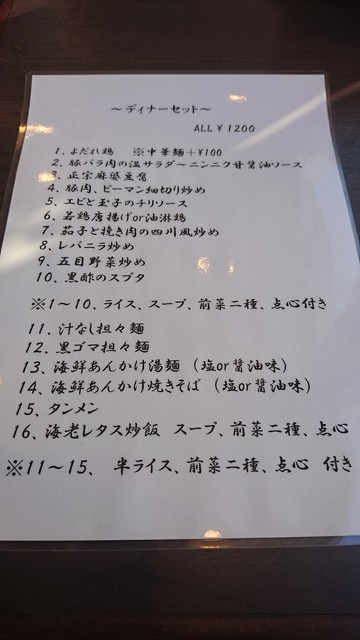 ～ディナーセット～
ALL￥1200
1、よだれ鶏　※中華麺＋￥100
2、豚バラ肉の温サラダ～ニンニク甘醤油ソース
3、正宗麻婆豆腐
4、豚肉、ピーマン細切り炒め
5、エビと玉子のチリソース
6、若鶏唐揚げor油淋鶏
7、茄子と挽き肉の四川風炒め
8、レバニラ炒め
9、五目野菜炒め
10、黒酢のスブタ
※1～10、ライス、スープ、前菜二種、点心付き
11、汁なし担々麺
12、黒ゴマ担々麺
13、海鮮あんかけ湯麺（塩or醤油味）
14、海鮮あんかけ焼きそば（塩or醤油味）
15、タンメン
16、海老レタス炒飯　スープ、前菜二種、点心
※11～15、半ライス、前菜二種、点心　付き